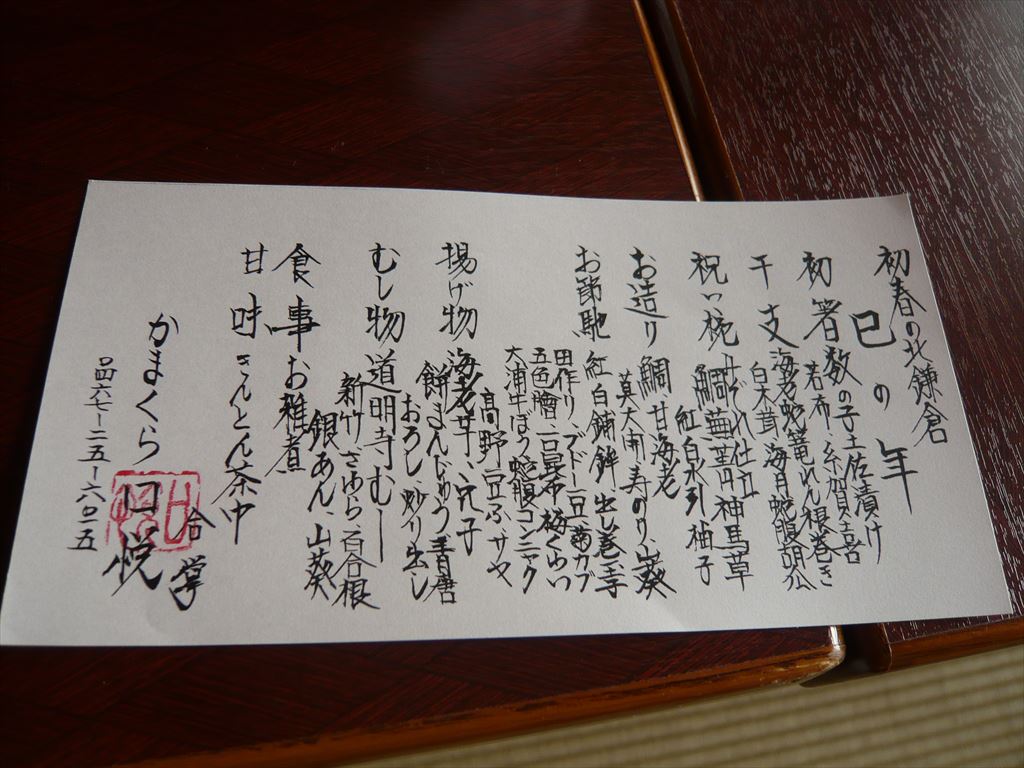 初春の北鎌倉
巳の年
初箸 数の子土佐漬け
若布、糸賀喜
干支 海老蛇篭れん根巻き
白木茸、海月蛇腹胡瓜
祝い椀 みぞれ仕立
鯛蕪、芽出神馬草
紅白水引 柚子
お造り 鯛、甘海老
莫大開寿のり、山葵
お節馳 紅白錦鉢、出し巻玉子
田作り、ブドー豆、菊カブ
五色膾、豆昆布、梅くらい
大浦牛ぼう、蛇腹コンニャク
高野豆ふ、サヤ
揚げ物 海老芋、穴子
餅まんじゅう、青唐
おろし、炒り出し
むし物 道明寺むし
新竹、さわら、百合根
銀あん、山葵
食事 お雑煮
甘味 きんとん茶巾
かまくら 円悦
合掌
四六七ー二五ー六〇一五